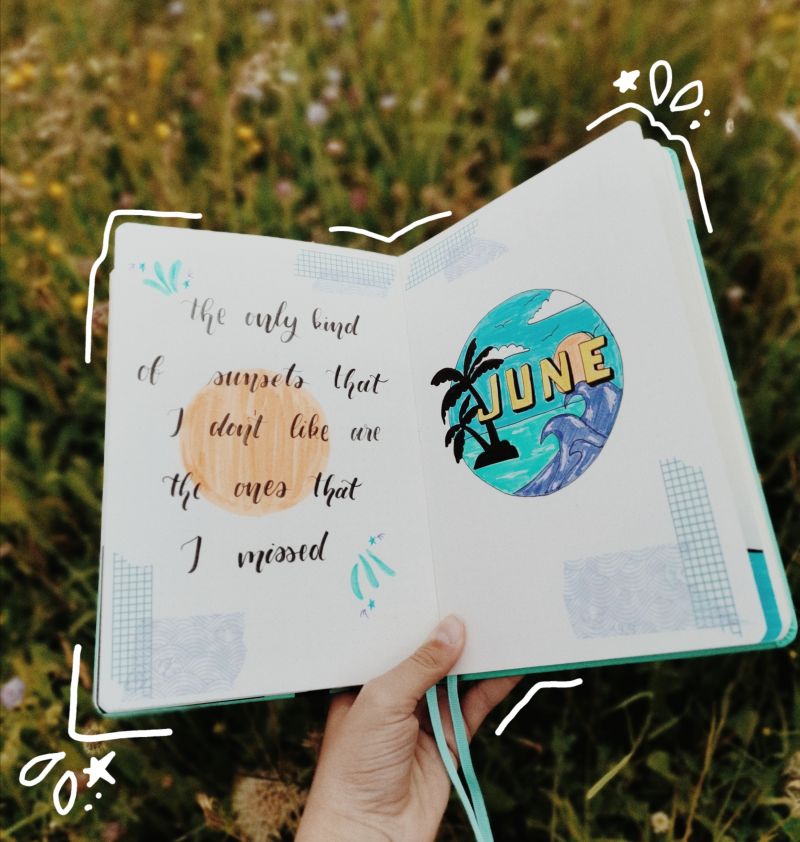 the only kind
of sunsets that
I don't like are
the ones that
I missed
JUNE